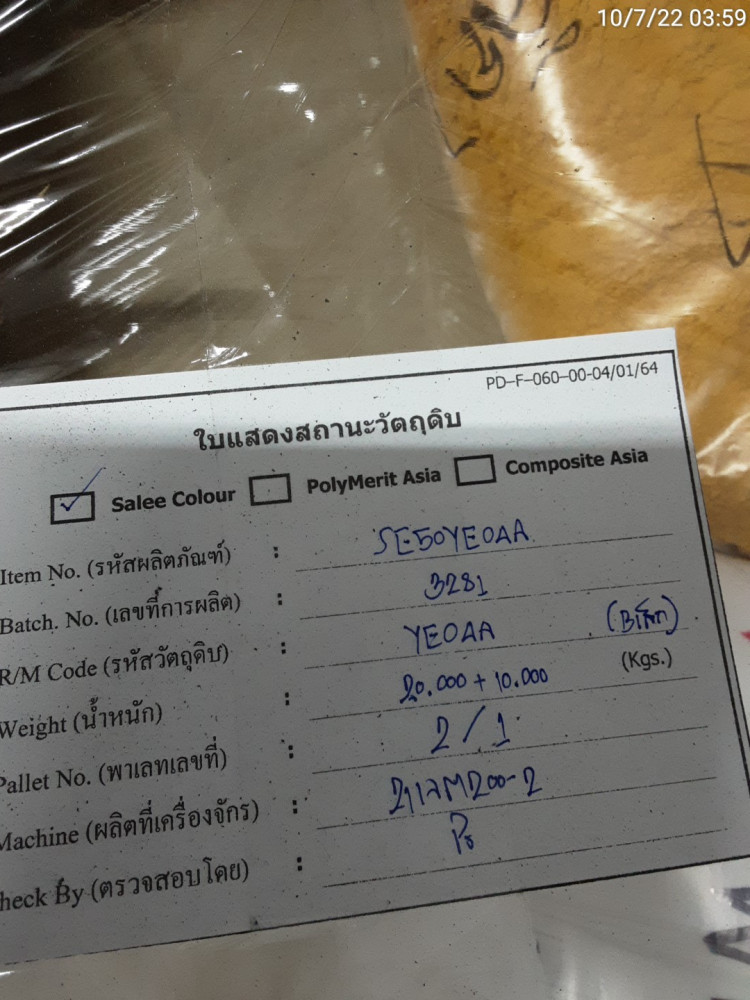 10/7/22 03:59
PD-F-060-00-04/01/64
ใบแสดงสถานะวัตถุดิบ
Salee Colour PolyMerit Asia Composite Asia
Item No. (รหัสผลิตภัณฑ์) : SE50YE0AA
Batch. No. (เลขที่การผลิต) : 3281
R/M Code (รหัสวัตถุดิบ) : YE0AA
Weight (น้ำหนัก) : 20.000 + 10.000 (Kgs.)
Pallet No. (พาเลทเลขที่) : 2/1
Machine (ผลิตที่เครื่องจักร) :
heck By (ตรวจสอบโดย) :